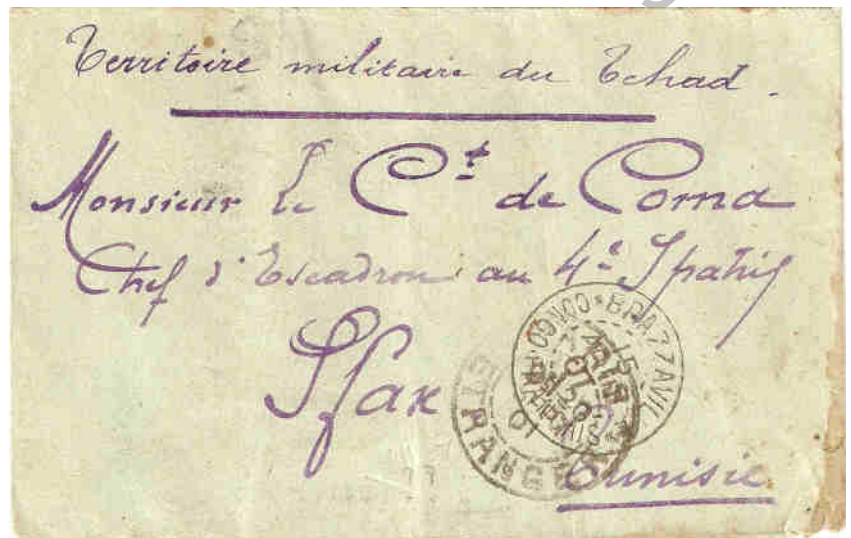 Territoire militaire du Tchad.
Monsieur le Ct de Corna
Chef d'Escadrons au 4e Spahis
Sfax
Tunisie
CONGO * BRAZZAVIL
ETRANGER